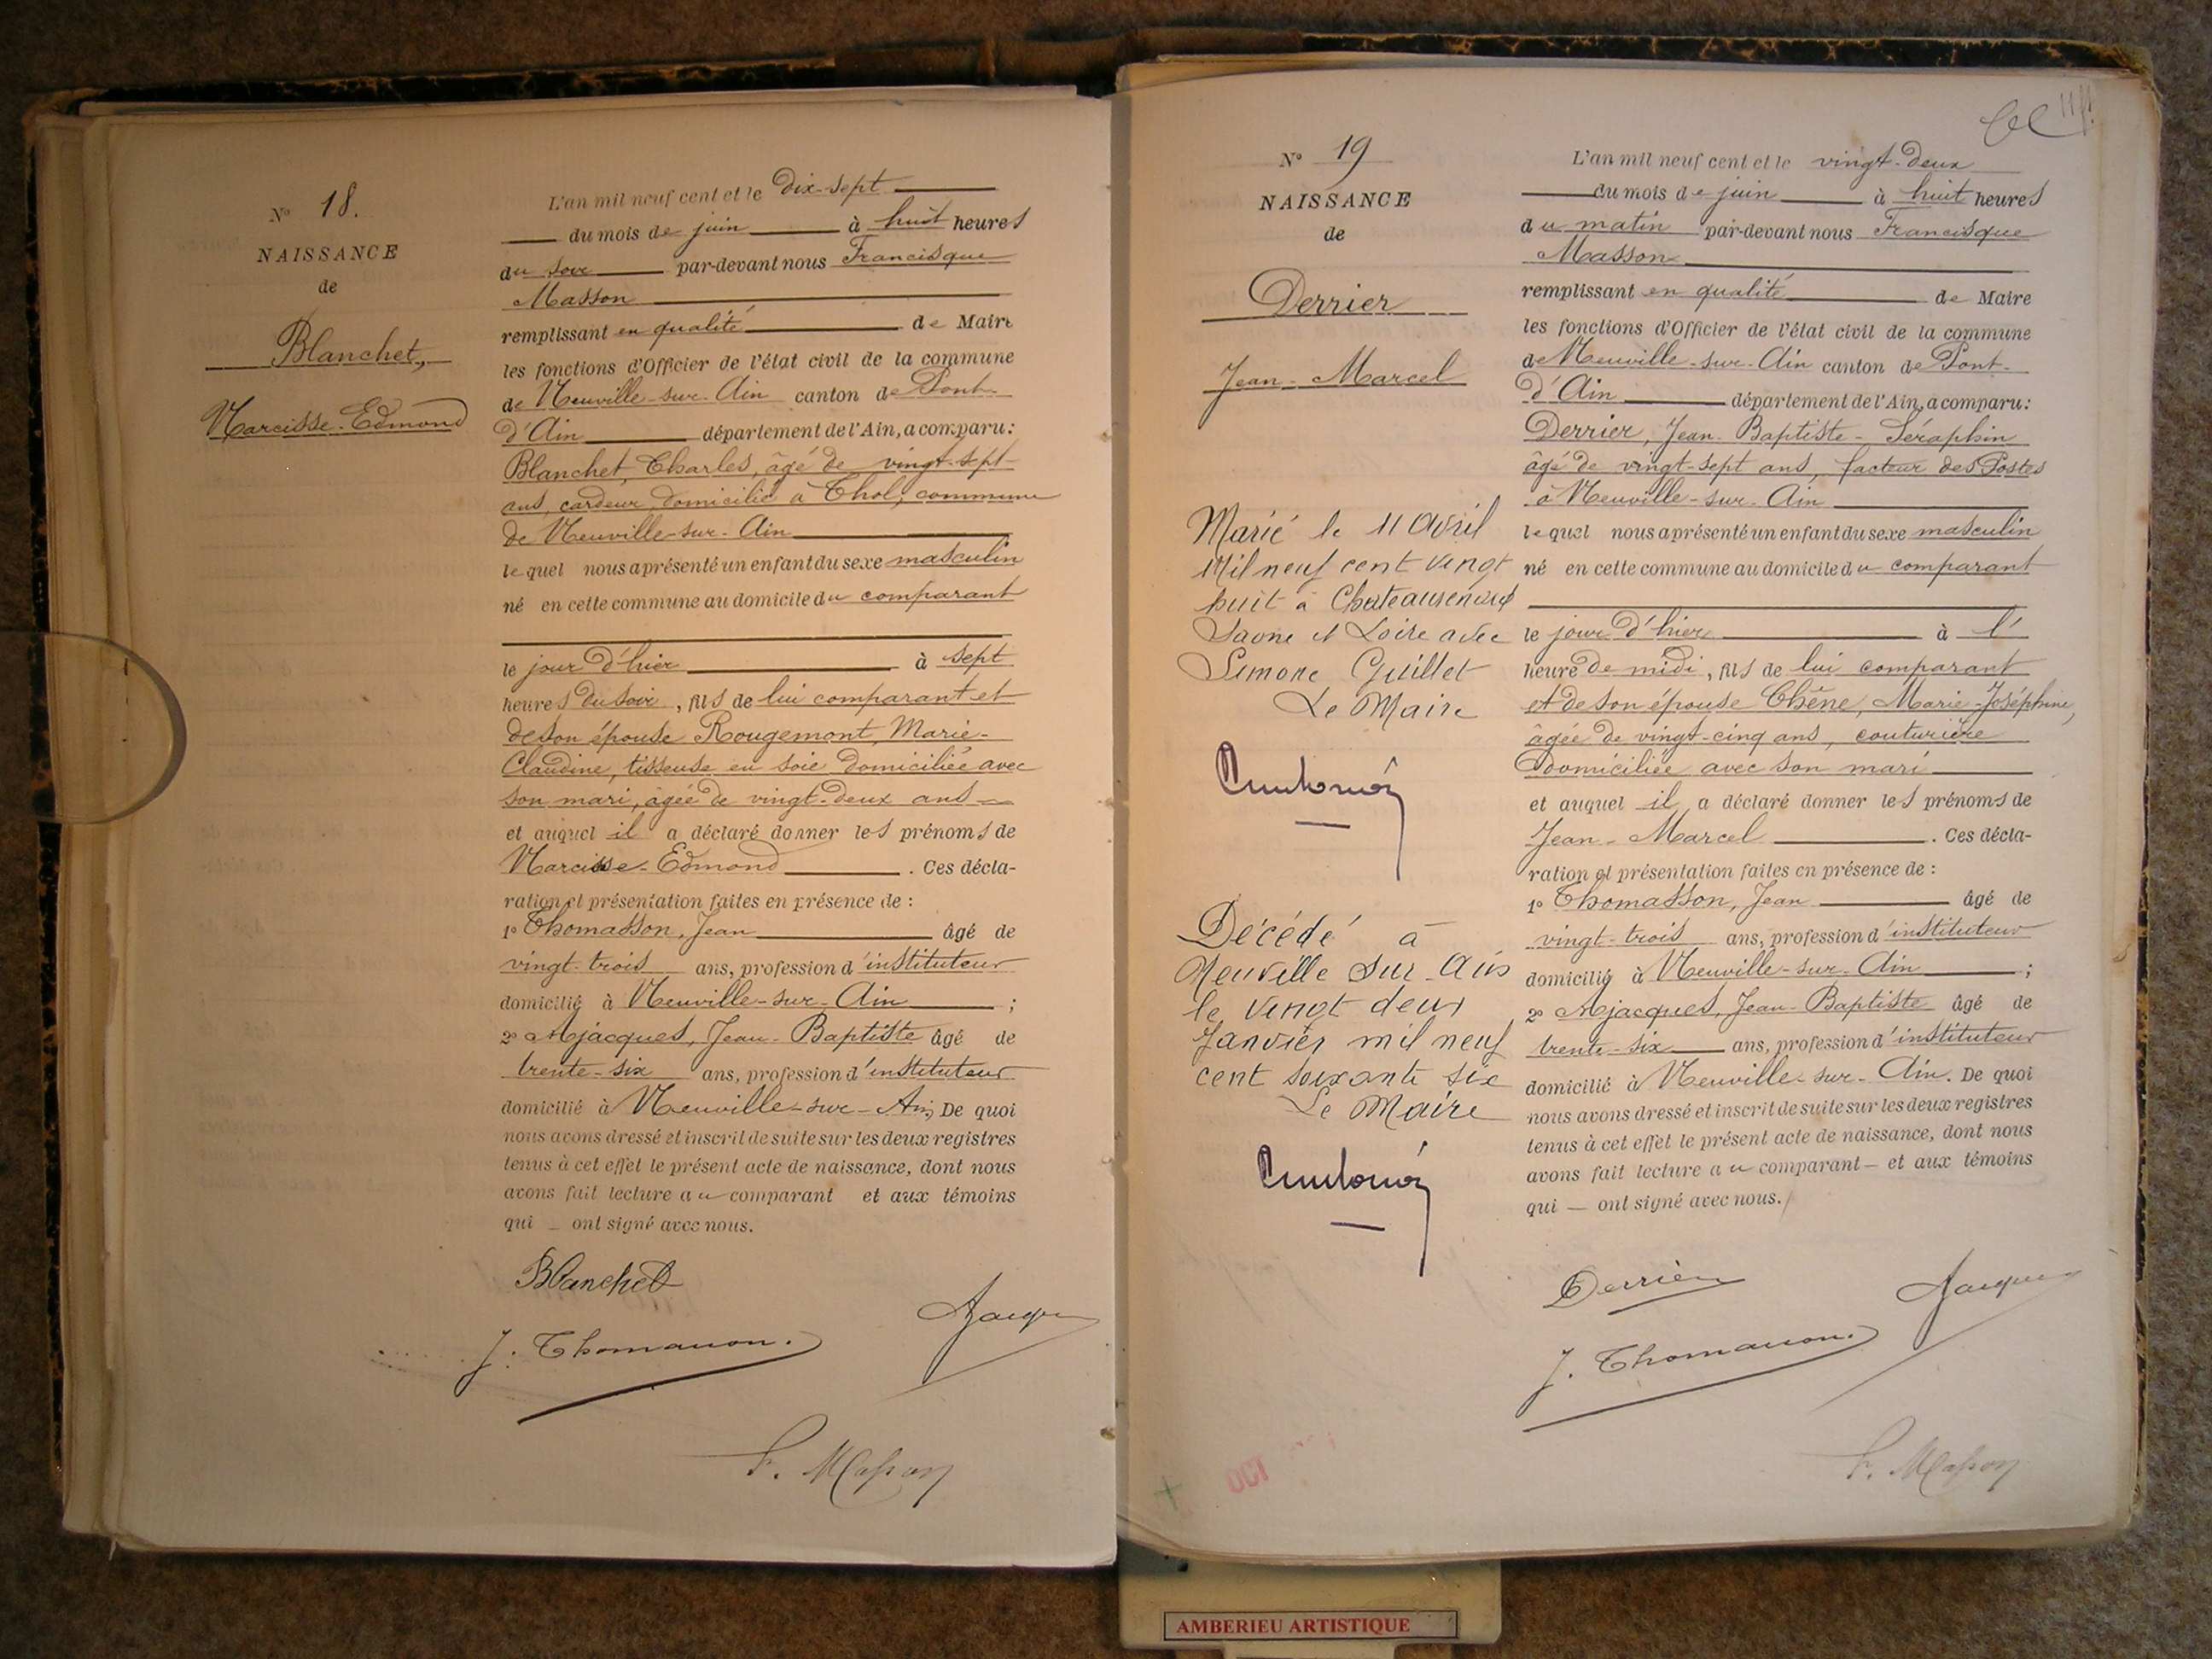 N° 18.
NAISSANCE
de
Blanchet,
Narcisse-Edmond
L'an mil neuf cent et le dix-sept
du mois de juin à huit heures
du soir par-devant nous Francisque
Masson
remplissant en qualité de Maire
les fonctions d'Officier de l'état civil de la commune
de Neuville-sur-Ain canton de Pont-
d'Ain département de l'Ain, a comparu:
Blanchet, Charles, âgé de vingt-sept
ans, cardeur, domicilié à Thol, commune
de Neuville-sur-Ain
lequel nous a présenté un enfant du sexe masculin
né en cette commune au domicile du comparant
le jour d'hier à sept
heures du soir, fils de lui comparant et
de son épouse Rougemont, Marie-
Claudine, tisseuse en soie domiciliée avec
son mari, âgée de vingt-deux ans
et auquel il a déclaré donner les prénoms de
Narcisse-Edmond. Ces décla-
ration et présentation faites en présence de :
1° Thomasson, Jean âgé de
vingt-trois ans, profession d'instituteur
domicilié à Neuville-sur-Ain ;
2° Ajacques, Jean-Baptiste âgé de
trente-six ans, profession d'instituteur
domicilié à Neuville-sur-Ain, De quoi
nous avons dressé et inscrit de suite sur les deux registres
tenus à cet effet le présent acte de naissance, dont nous
avons fait lecture au comparant et aux témoins
qui – ont signé avec nous.
Blanchet
Ajacques
J. Thomasson.
F. Masson
N° 19
NAISSANCE
de
Derrier
Jean-Marcel
Marié le 11 Avril
Mil neuf cent vingt
huit à Chateaurenaud
Saone et Loire avec
Simone Guillet
Le Maire
Décédé à
Neuville sur Ain
le vingt deux
Janvier mil neuf
cent soixante six
Le Maire
L'an mil neuf cent et le vingt-deux
du mois de juin à huit heures
du matin par-devant nous Francisque
Masson
remplissant en qualité de Maire
les fonctions d'Officier de l'état civil de la commune
de Neuville-sur-Ain canton de Pont-
d'Ain département de l'Ain, a comparu:
Derrier, Jean-Baptiste-Séraphin
âgé de vingt-sept ans, facteur des Postes
à Neuville-sur-Ain
lequel nous a présenté un enfant du sexe masculin
né en cette commune au domicile du comparant
le jour d'hier à l'
heure de midi, fils de lui comparant
et de son épouse Chêne, Marie-Joséphine,
âgée de vingt-cinq ans, couturière
domiciliée avec son mari
et auquel il a déclaré donner les prénoms de
Jean-Marcel. Ces décla-
ration et présentation faites en présence de :
1° Thomasson, Jean âgé de
vingt-trois ans, profession d'instituteur
domicilié à Neuville-sur-Ain ;
2° Ajacques, Jean-Baptiste âgé de
trente-six ans, profession d'instituteur
domicilié à Neuville-sur-Ain. De quoi
nous avons dressé et inscrit de suite sur les deux registres
tenus à cet effet le présent acte de naissance, dont nous
avons fait lecture au comparant – et aux témoins
qui – ont signé avec nous.
Derrier
Ajacques
J. Thomasson.
F. Masson
OCT
AMBERIEU ARTISTIQUE